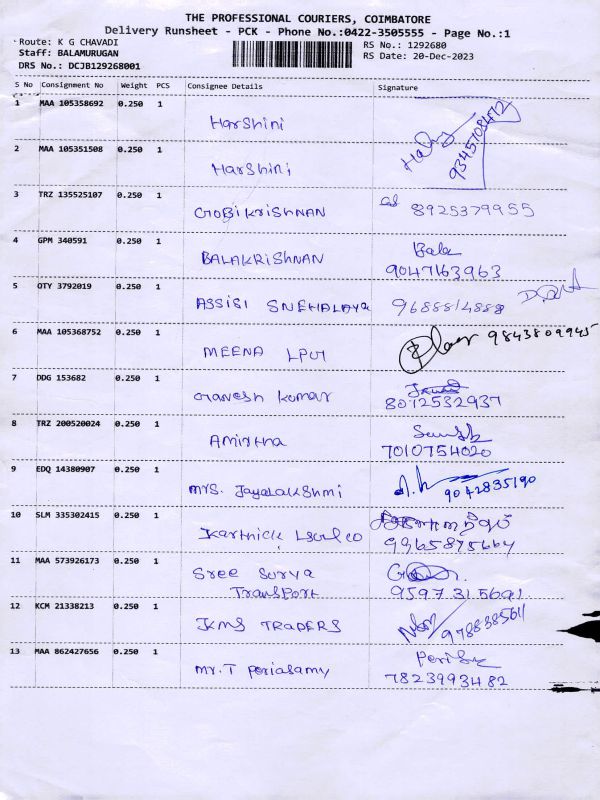 THE PROFESSIONAL COURIERS, COIMBATORE
Delivery Runsheet - PCK - Phone No.:0422-3505555 - Page No.:1
Route: K G CHAVADI
RS No.: 1292680
Staff: BALAMURUGAN
RS Date: 20-Dec-2023
DRS No.: DCJB129268001
S No Consignment No Weight PCS Consignee Details Signature
1 MAA 105358692 0.250 1 Harshini 9345708472
2 MAA 105351508 0.250 1 Harshini
3 TRZ 135525107 0.250 1 GOBIKRISHNAN 8925379955
4 GPM 340591 0.250 1 BALAKRISHNAN Bala
9047163963
5 OTY 3792019 0.250 1 ASSISI SNEHALAYA 9688814888
6 MAA 105368752 0.250 1 MEENA 9843809945
7 DDG 153682 0.250 1 Ganesh Kumar
8072532937
8 TRZ 200520024 0.250 1 Amirtha
7010754020
9 EDQ 14380907 0.250 1 Mrs. Jayalakshmi 9042835190
10 SLM 335302415 0.250 1 Karthick
9965875664
11 MAA 573926173 0.250 1 Sree Surya
Transport 9597315691
12 KCM 21338213 0.250 1 KMS TRADERS
13 MAA 862427656 0.250 1 Mr. T Periasamy
7823993482